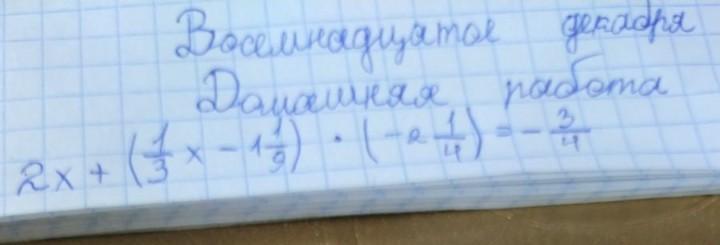 Восемнадцатое декабря
Домашняя работа
2x + (1/3 x - 1 1/9) · (-2 1/4) = - 3/4